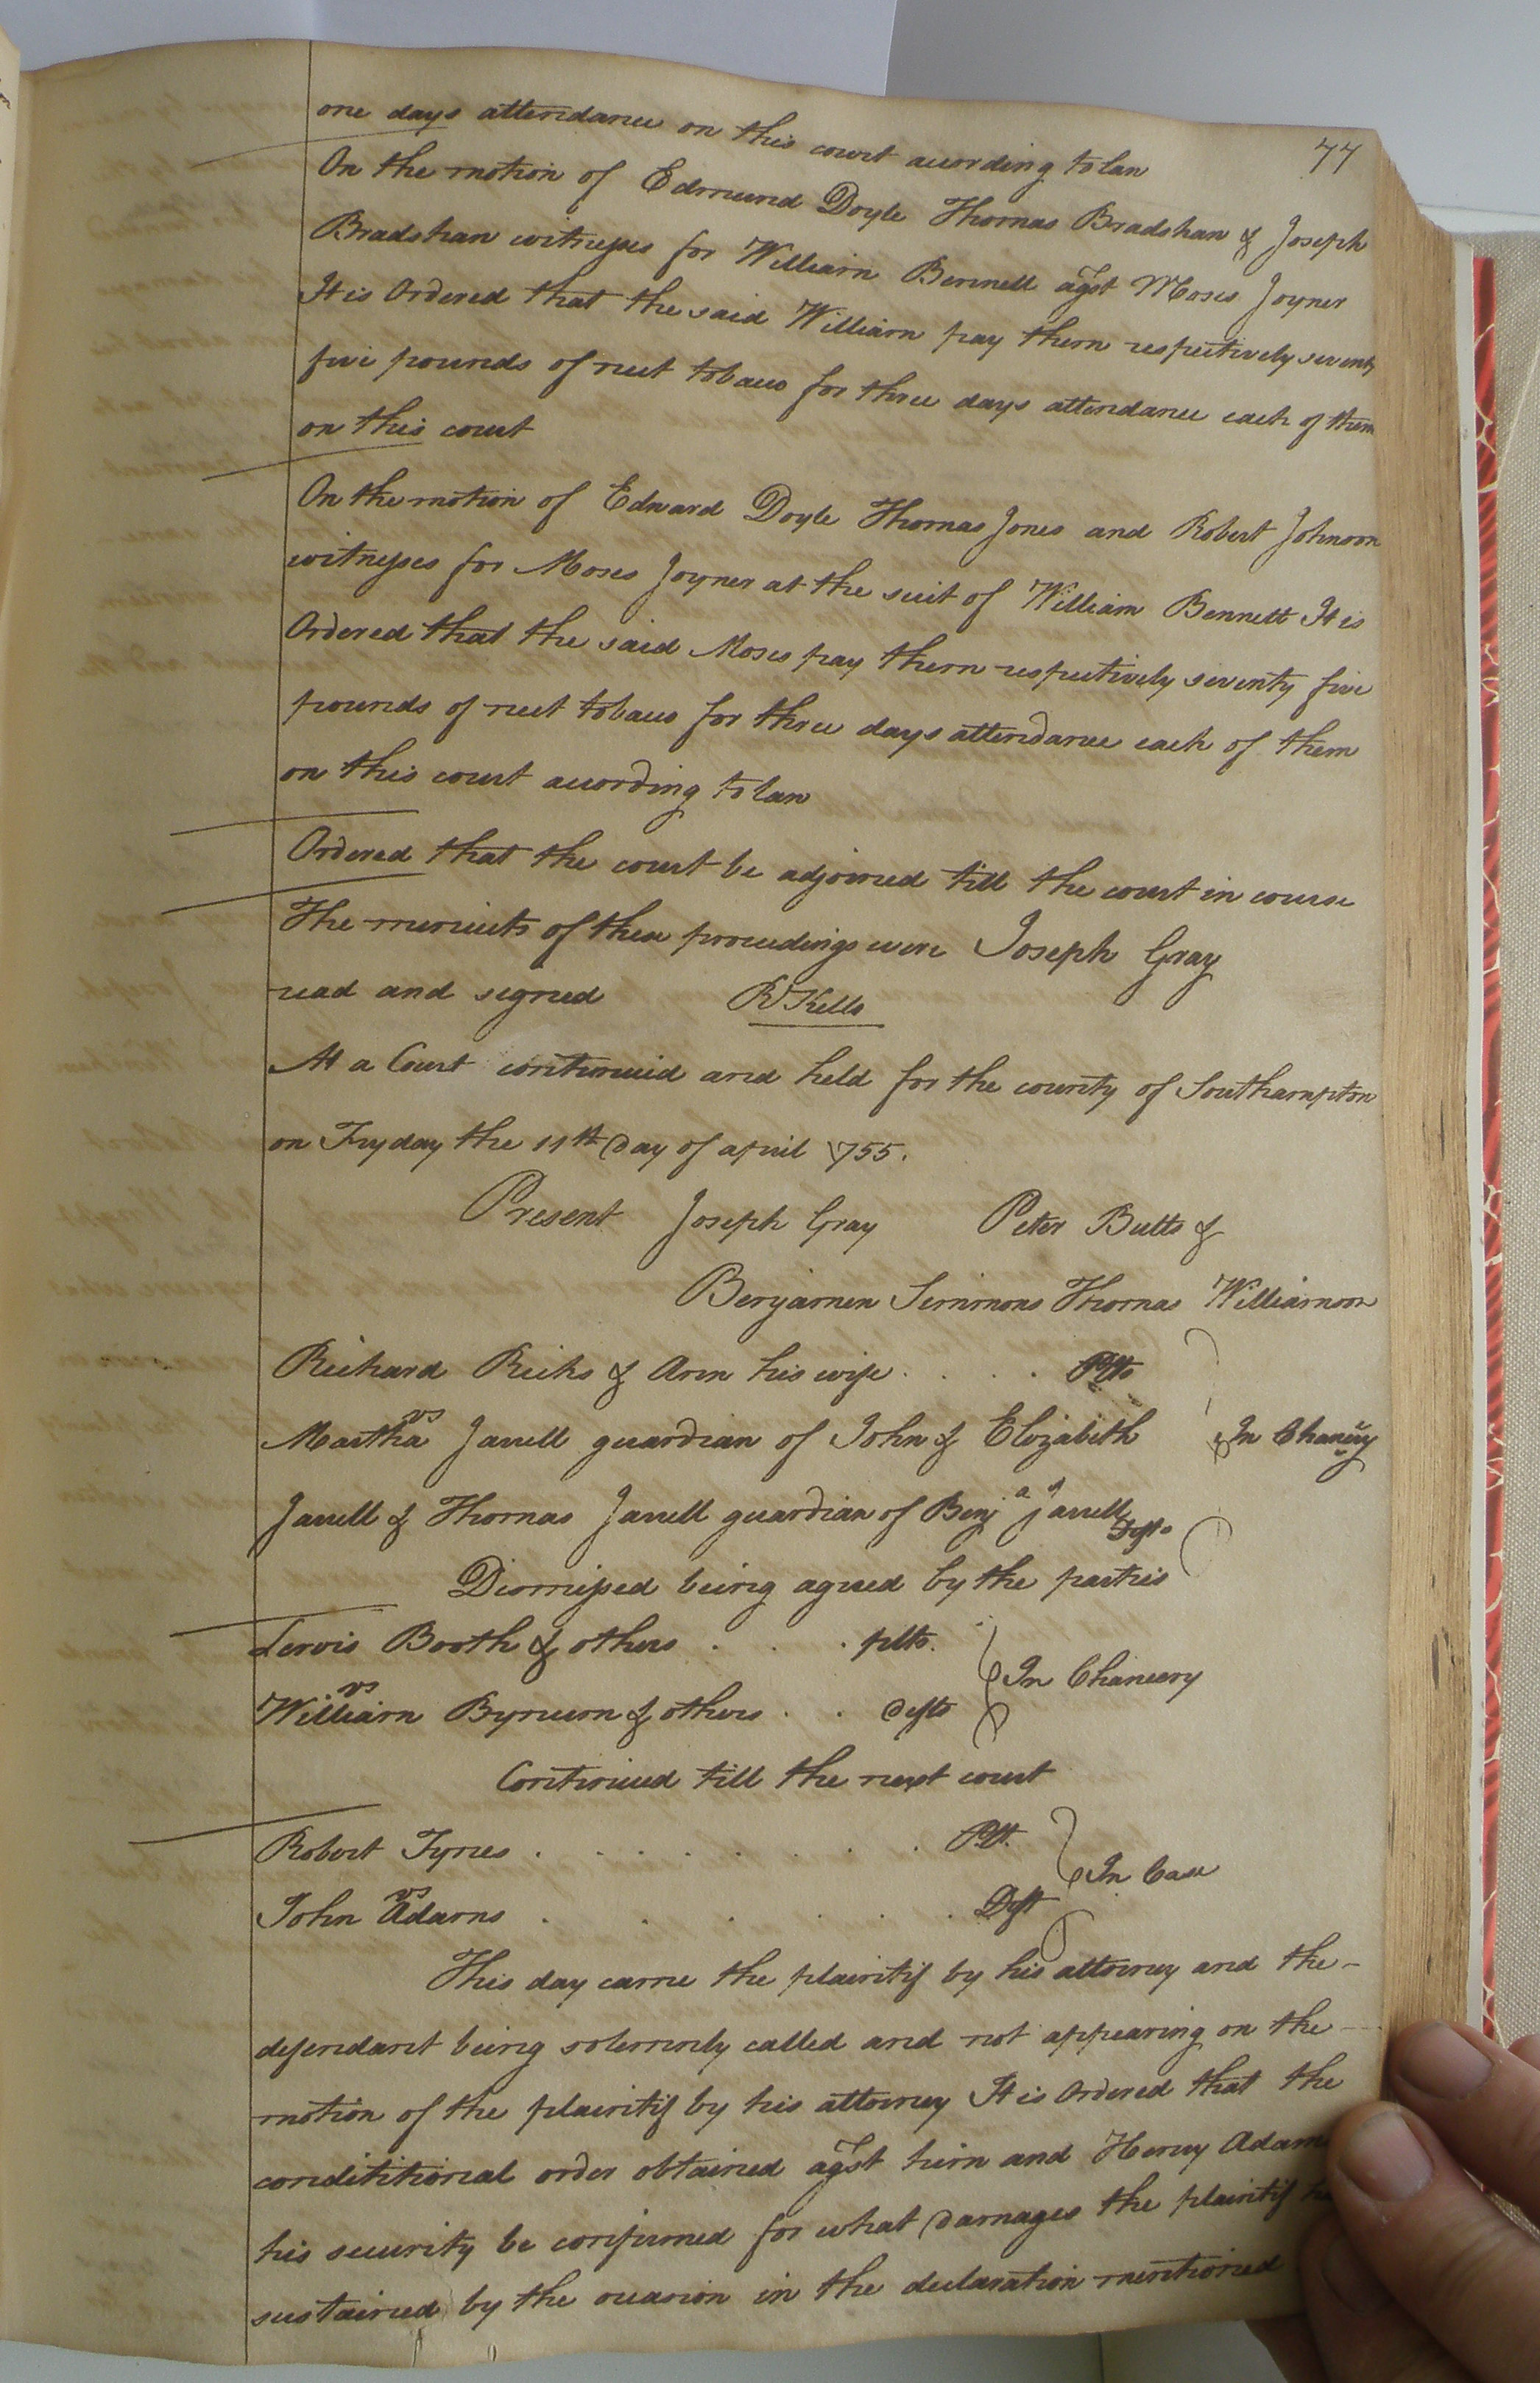 77
one days attendance on this court according to law
On the motion of Edmund Doyle Thomas Bradshaw & Joseph
Bradshaw witnesses for William Bennett agst Moses Joyner
It is Ordered that the said William pay them respectively seventy
five pounds of neet tobacco for three days attendance each of them
on this court
On the motion of Edward Doyle Thomas Jones and Robert Johnson
witnesses for Moses Joyner at the suit of William Bennett It is
Ordered that the said Moses pay them respectively seventy five
pounds of neet tobacco for three days attendance each of them
on this court according to law
Ordered that the court be adjorned till the court in course
The minuits of these proceedings were Joseph Gray
read and signed R Kello
At a Court continuid and held for the county of Southampton
on Fryday the 11th day of april 1755.
Present Joseph Gray Peter Butts &
Benjamen Simmons Thomas Williamson
Richard Ricks & Ann his wife . . . . Plts
vs
Martha Jarrell guardian of John & Elizabeth In Chancery
Jarrell & Thomas Jarrell guardian of Benja Jarrell Defts
Dismissed being agreed by the parties
Lewis Booth & others . . . plts.
vs In Chancery
William Bynum & others . . defts
Continued till the next court
Robert Tynes . . . . . . . . Plt.
vs In Case
John Adams . . . . . . Deft
This day came the plaintif by his attorney and the
defendant being solemnly called and not appearing on the
motion of the plaintif by his attorney It is Ordered that the
condititional order obtained agst him and Henry Adam
his security be confirmed for what damages the plaintif
sustained by the occasion in the declaration mentioned